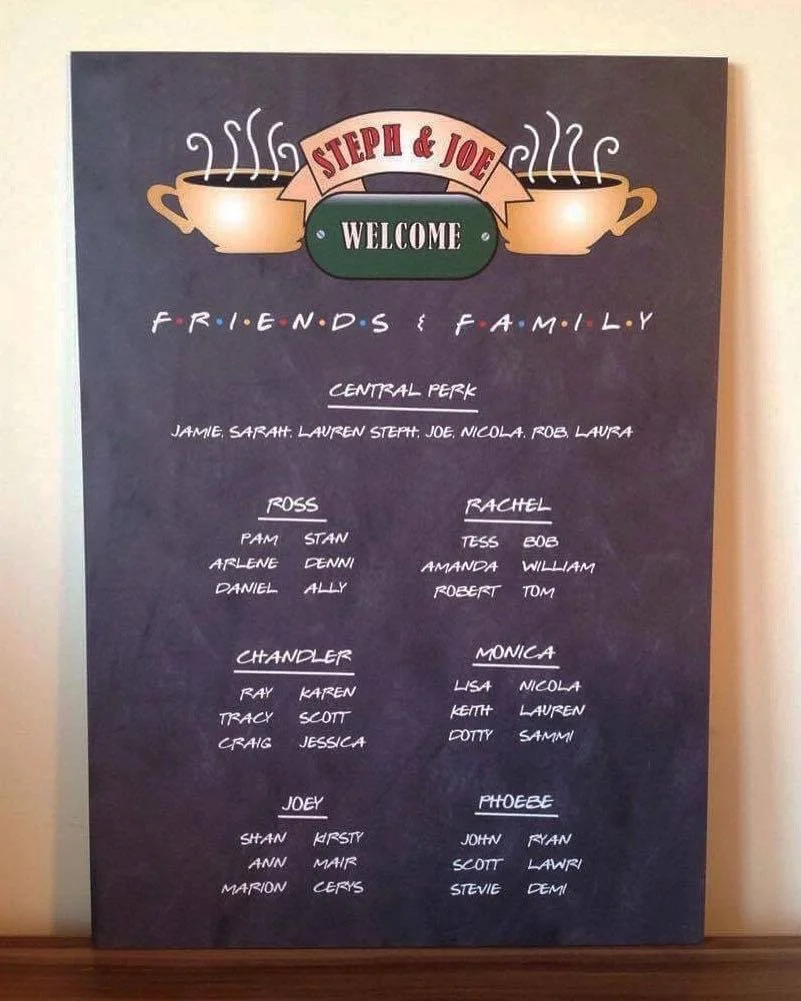 STEPH & JOE
WELCOME
F·R·I·E·N·D·S & F·A·M·I·L·Y
CENTRAL PERK
JAMIE, SARAH, LAUREN STEPH, JOE, NICOLA, ROB, LAURA
ROSS
PAM STAN
ARLENE DENNI
DANIEL ALLY
RACHEL
TESS BOB
AMANDA WILLIAM
ROBERT TOM
CHANDLER
RAY KAREN
TRACY SCOTT
CRAIG JESSICA
MONICA
LISA NICOLA
KEITH LAUREN
DOTTY SAMMI
JOEY
SHAN KIRSTY
ANN MAIR
MARION CERYS
PHOEBE
JOHN RYAN
SCOTT LAWRI
STEVIE DEMI